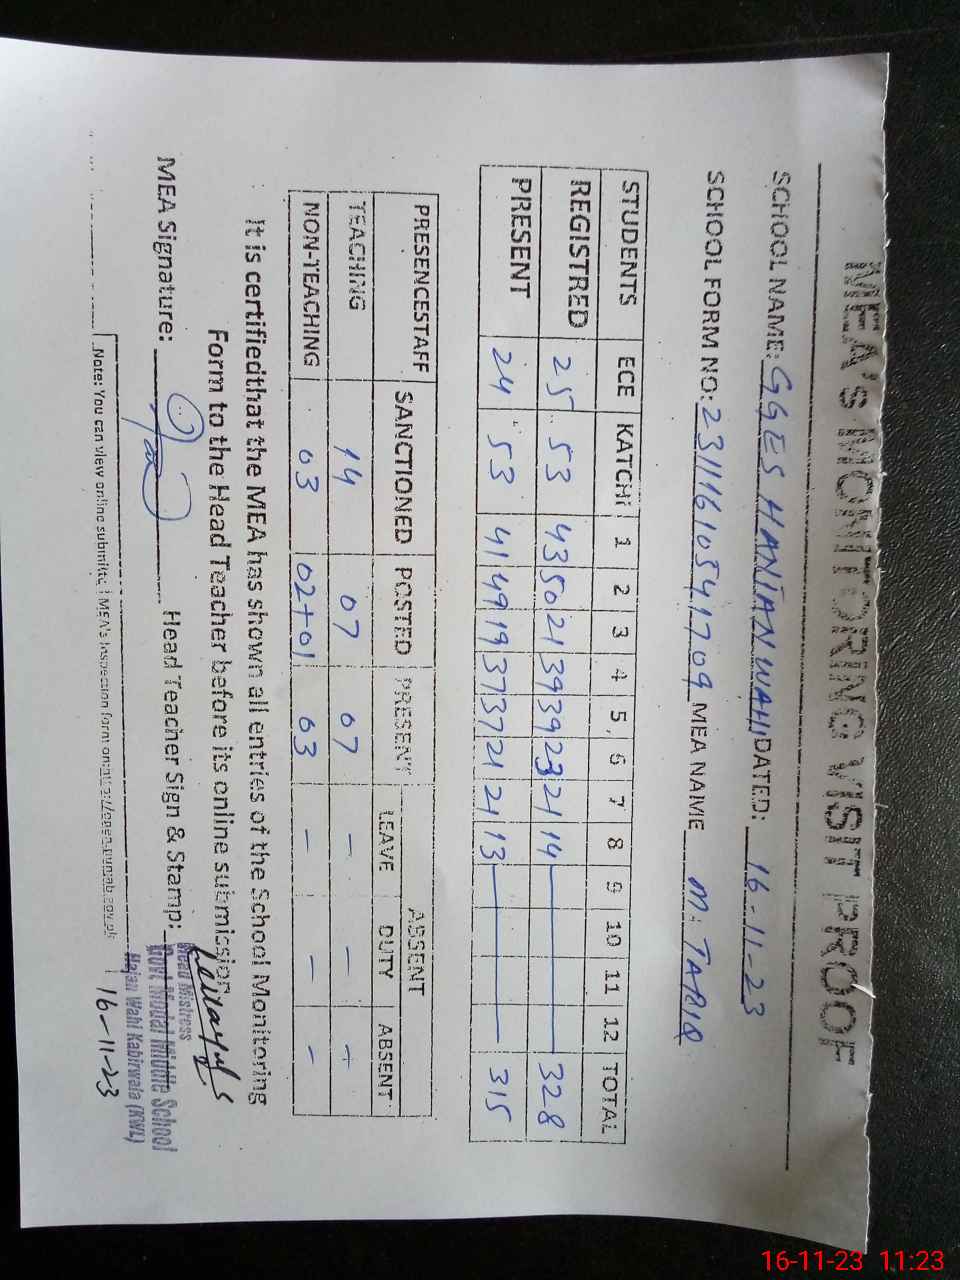 MEA'S MONITORING VISIT PROOF
SCHOOL NAME: GGES HANIAN WAHI DATED: 16-11-23
SCHOOL FORM NO: 23111610541709 MEA NAME M. TARIQ
STUDENTS ECE KATCHI 1 2 3 4 5, 6 7 8 9 10 11 12 TOTAL
REGISTRED 25 53 43 50 21 39 39 23 21 14 — 328
PRESENT 24 53 41 49 19 37 37 21 21 13 — 315
PRESENCESTAFF SANCTIONED POSTED PRESENT ABSENT
LEAVE DUTY ABSENT
TEACHING 14 07 07 – – –
NON-TEACHING 03 02+01 03 – – –
It is certifiedthat the MEA has shown all entries of the School Monitoring
Form to the Head Teacher before its online submission
MEA Signature: Head Teacher Sign & Stamp:
Head Mistress
Govt. Modal Middle School
Hajan Wahi Kabirwala (KWL)
16-11-23
Note: You can view online submitted MEA's Inspection form on: http://open.punjab.gov.pk
16-11-23 11:23